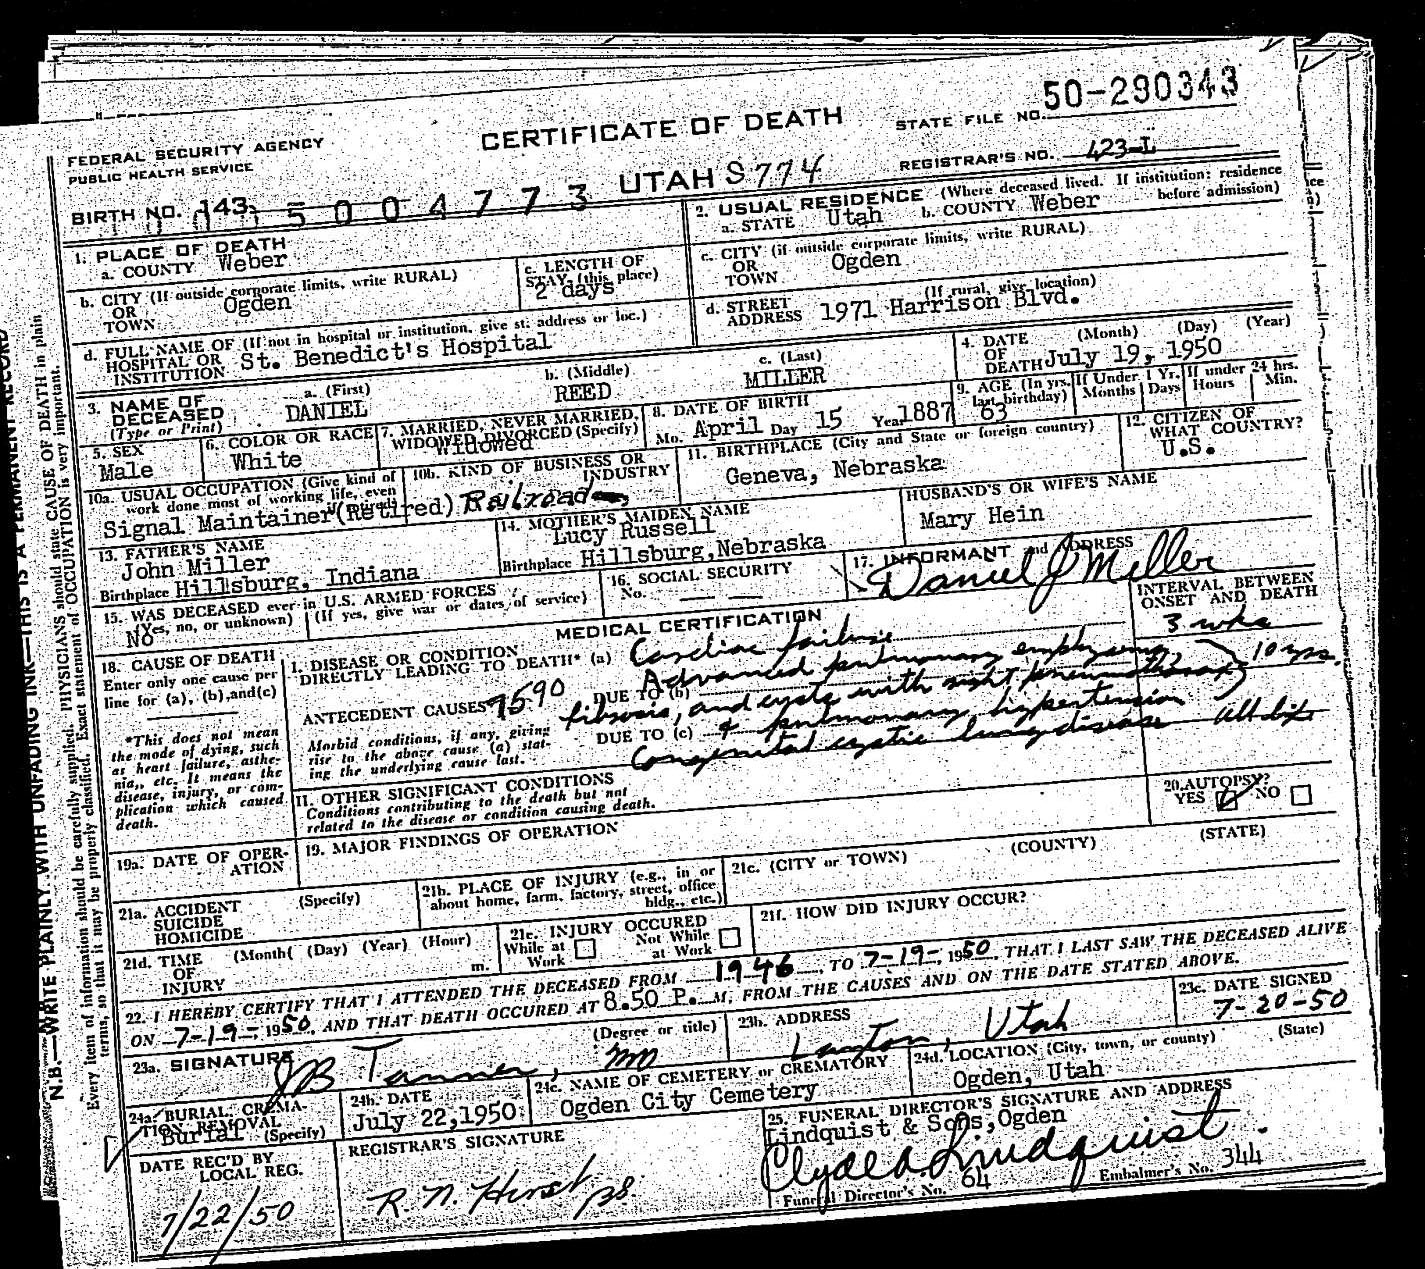 50-290343
CERTIFICATE OF DEATH
STATE FILE NO.
FEDERAL SECURITY AGENCY
PUBLIC HEALTH SERVICE
UTAH S774
REGISTRAR'S NO. 423-L
BIRTH NO. 143
5004773
1. PLACE OF DEATH
a. COUNTY Weber
2. USUAL RESIDENCE (Where deceased lived. If institution: residence before admission)
a. STATE Utah b. COUNTY Weber
b. CITY (If outside corporate limits, write RURAL)
OR
TOWN
Ogden
c. LENGTH OF
STAY (this place)
2 days
c. CITY (if outside corporate limits, write RURAL)
OR
TOWN
Ogden
d. FULL NAME OF (If not in hospital or institution, give st. address or loc.)
HOSPITAL OR
INSTITUTION
St. Benedict's Hospital
d. STREET
ADDRESS
(If rural, give location)
1971 Harrison Blvd.
3. NAME OF
DECEASED
(Type or Print)
a. (First)
DANIEL
b. (Middle)
REED
c. (Last)
MILLER
4. DATE
OF
DEATH
(Month) (Day) (Year)
July 19, 1950
5. SEX
Male
6. COLOR OR RACE
White
7. MARRIED, NEVER MARRIED,
WIDOWED, DIVORCED (Specify)
Widowed
8. DATE OF BIRTH
Mo. April Day 15 Year 1887
9. AGE (In yrs.
last birthday)
63
If Under 1 Yr.
Months Days
If under 24 hrs.
Hours Min.
10a. USUAL OCCUPATION (Give kind of
work done most of working life, even
Signal Maintainer (Retired)
10b. KIND OF BUSINESS OR
INDUSTRY
Railroad
11. BIRTHPLACE (City and State or foreign country)
Geneva, Nebraska
12. CITIZEN OF
WHAT COUNTRY?
U.S.
13. FATHER'S NAME
John Miller
Birthplace Hillsburg, Indiana
14. MOTHER'S MAIDEN NAME
Lucy Russell
Birthplace Hillsburg, Nebraska
HUSBAND'S OR WIFE'S NAME
Mary Hein
15. WAS DECEASED ever in U.S. ARMED FORCES?
(Yes, no, or unknown) (If yes, give war or dates of service)
No
16. SOCIAL SECURITY
No.
17. INFORMANT and ADDRESS
Daniel J Miller
MEDICAL CERTIFICATION
INTERVAL BETWEEN
ONSET AND DEATH
18. CAUSE OF DEATH
Enter only one cause per
line for (a), (b), and (c)
*This does not mean
the mode of dying, such
as heart failure, asthe-
nia, etc. It means the
disease, injury, or com-
plication which caused
death.
I. DISEASE OR CONDITION
DIRECTLY LEADING TO DEATH* (a) Cardiac failure 3 wks
ANTECEDENT CAUSES 7590
DUE TO (b) Advanced pulmonary emphysema, 10 yrs.
fibrosis, and cysts with right pneumothorax
Morbid conditions, if any, giving
rise to the above cause (a) stat-
ing the underlying cause last.
DUE TO (c) & pulmonary hypertension
Congenital cystic lung disease All life
II. OTHER SIGNIFICANT CONDITIONS
Conditions contributing to the death but not
related to the disease or condition causing death.
20. AUTOPSY?
YES NO
19a. DATE OF OPER-
ATION
19. MAJOR FINDINGS OF OPERATION
21a. ACCIDENT
SUICIDE
HOMICIDE
(Specify)
21b. PLACE OF INJURY (e.g., in or
about home, farm, factory, street, office
bldg., etc.)
21c. (CITY or TOWN) (COUNTY) (STATE)
21d. TIME
OF
INJURY
(Month( (Day) (Year) (Hour)
m.
21e. INJURY OCCURED
While at
Work
Not While
at Work
21f. HOW DID INJURY OCCUR?
22. I HEREBY CERTIFY THAT I ATTENDED THE DECEASED FROM 1946, TO 7-19-, 1950, THAT I LAST SAW THE DECEASED ALIVE
ON 7-19-, 1950, AND THAT DEATH OCCURED AT 8.50 P. M, FROM THE CAUSES AND ON THE DATE STATED ABOVE.
23a. SIGNATURE
JB Tanner, MD
(Degree or title)
23b. ADDRESS
Layton, Utah
23c. DATE SIGNED
7-20-50
24a. BURIAL, CREMA-
TION, REMOVAL
Burial (Specify)
24b. DATE
July 22, 1950
24c. NAME OF CEMETERY or CREMATORY
Ogden City Cemetery
24d. LOCATION (City, town, or county) (State)
Ogden, Utah
DATE REC'D BY
LOCAL REG.
7/22/50
REGISTRAR'S SIGNATURE
R. N. Hirst
25. FUNERAL DIRECTOR'S SIGNATURE AND ADDRESS
Lindquist & Sons, Ogden
Clyde A Lindquist.
Funeral Director's No. 64 Embalmer's No. 344
N.B.—WRITE PLAINLY WITH UNFADING INK—THIS IS A PERMANENT RECORD
Every item of information should be carefully supplied. PHYSICIANS should state CAUSE OF DEATH in plain
terms, so that it may be properly classified. Exact statement of OCCUPATION is very important.